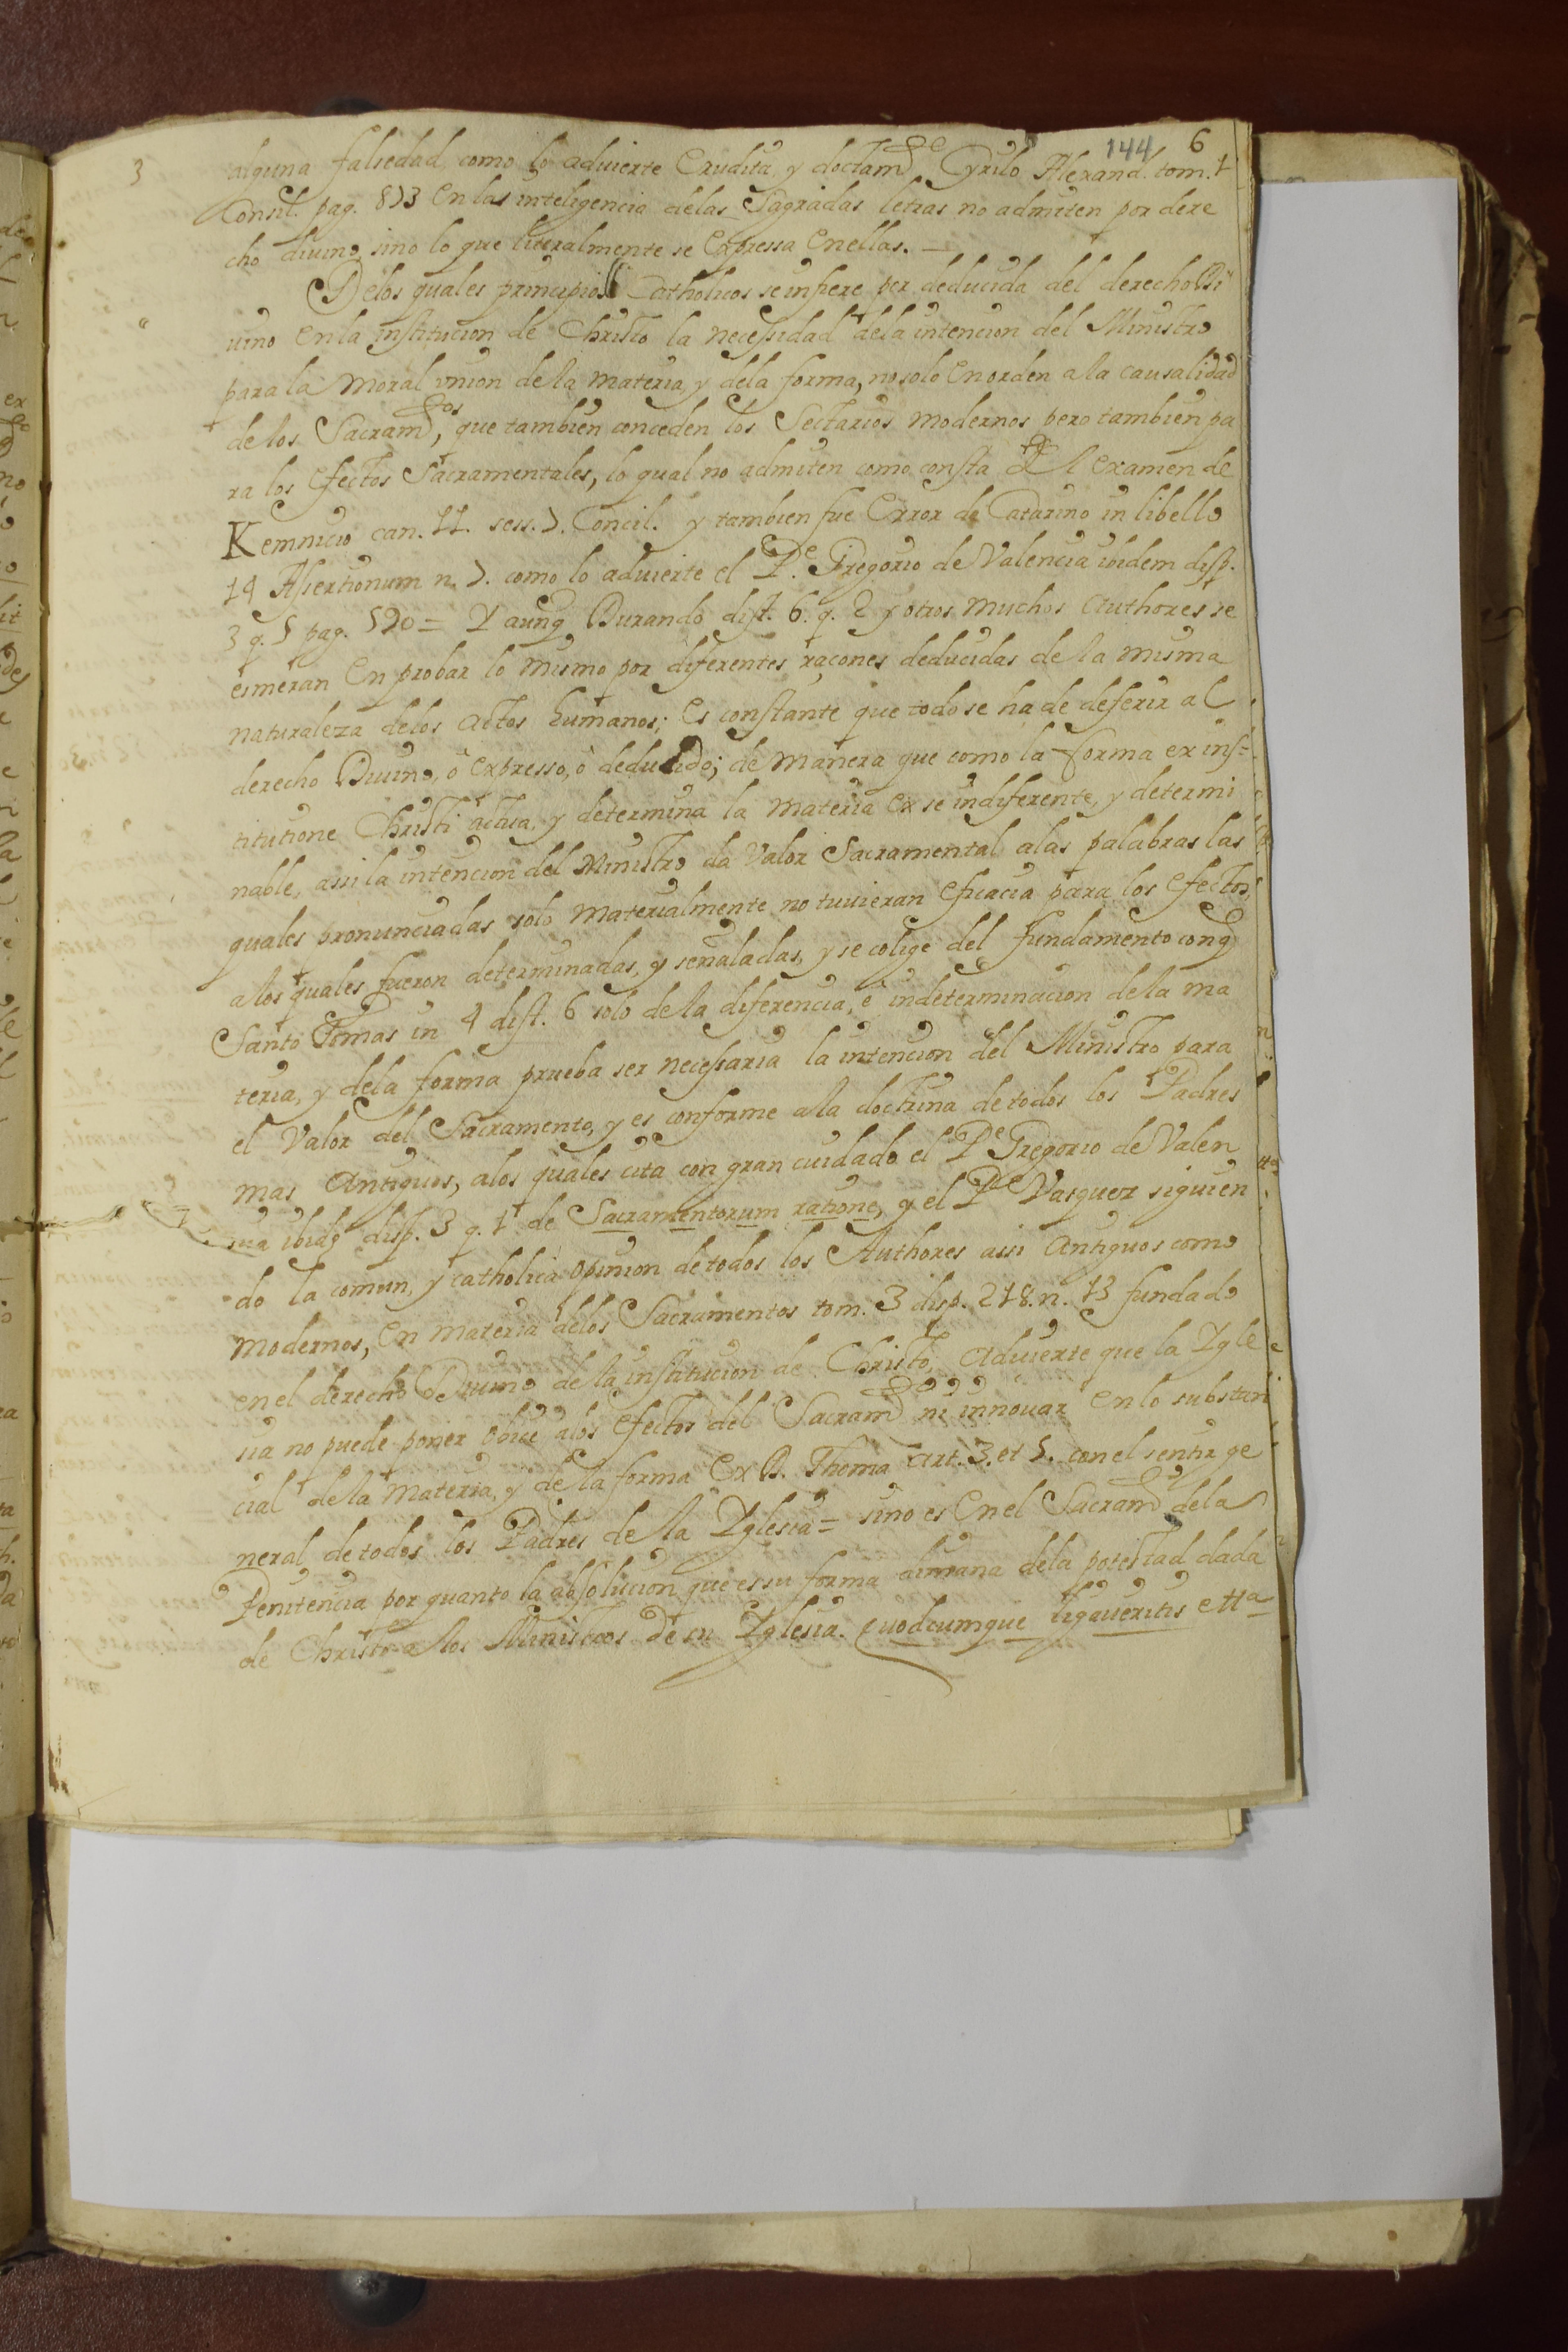 144 6
3 alguna falsedad, como lo aduierte Erudita, y doctam.te Cyrilo Alexand. tom. 1
Consil. pag. 873 En las inteligencia delas Sagradas letras no admiten por dere
cho diuino, sino lo que literalmente se Expressa Enellas. —
Delos quales principios Catholicos se infiere ser deducida del derecho Di
uino En la institucion de Christo la necessidad dela intencion del Ministro
para la Moral vnion de la materia y dela forma, no solo En orden a la causalidad
de los Sacram.tos, que tambien conceden los Sectarios modernos pero tambien pa
ra los Efectos Sacramentales, lo qual no admiten como consta del Examen de
Kemnicio can. 11. sess. 7. Concil. y tambien fue Error de Catarino in libello
14 Assertionum n. 7. como lo aduierte el P.e Gregorio de Valencia ibidem disp.
3 q. 5 pag. 520 = Y aunq Durando dist. 6. q. 2 y otros muchos Authores se
esmeran En probar lo mismo por diferentes raçones deducidas de la misma
naturaleza delos actos humanos; Es constante que todo se ha de deferir al
derecho Diuino, ò Expresso, ò deducido; de manera que como la forma ex ins=
titutione Christi actua, y determina la materia Ex se indiferente, y determi
nable, assi la intencion del Ministro da Valor Sacramental alas palabras las
quales pronunciadas solo materialmente no tuuieran Eficacia para los Efectos,
a los quales fueron determinadas, y señaladas, y se colige del fundamento conq
Santo Tomas in 4 dist. 6 solo de la diferencia, e indeterminacion dela ma
teria, y dela forma prueba ser necessaria la intencion del Ministro para
el Valor del Sacramento, y es conforme ala doctrina de todos los Padres
mas Antiguos, alos quales cita con gran cuidado el P.e Gregorio de Valen
cia ibidẽ disp. 3 q. 1 de Sacramentorum ratione, y el P.e Vasquez siguien
do la comun, y catholica opinion de todos los Authores assi Antiguos como
Modernos, En materia delos Sacramentos tom. 3 disp. 218. n. 73 fundado
en el derecho Diuino de la institucion de Christo, Aduierte que la Ygle
sia no puede poner obice alos Efectos del Sacram.to ni innouar En lo substan
cial de la Materia, y de la forma Ex D. Thoma art. 3. et 5. con el sentir ge
neral de todos los Padres de la Yglesia = sino es En el Sacram.to dela
Penitencia por quanto la absolucion que es su forma dimana dela potestad dada
de Christo a los Ministros de su Yglesia. Quodcumque ligaueritis etta